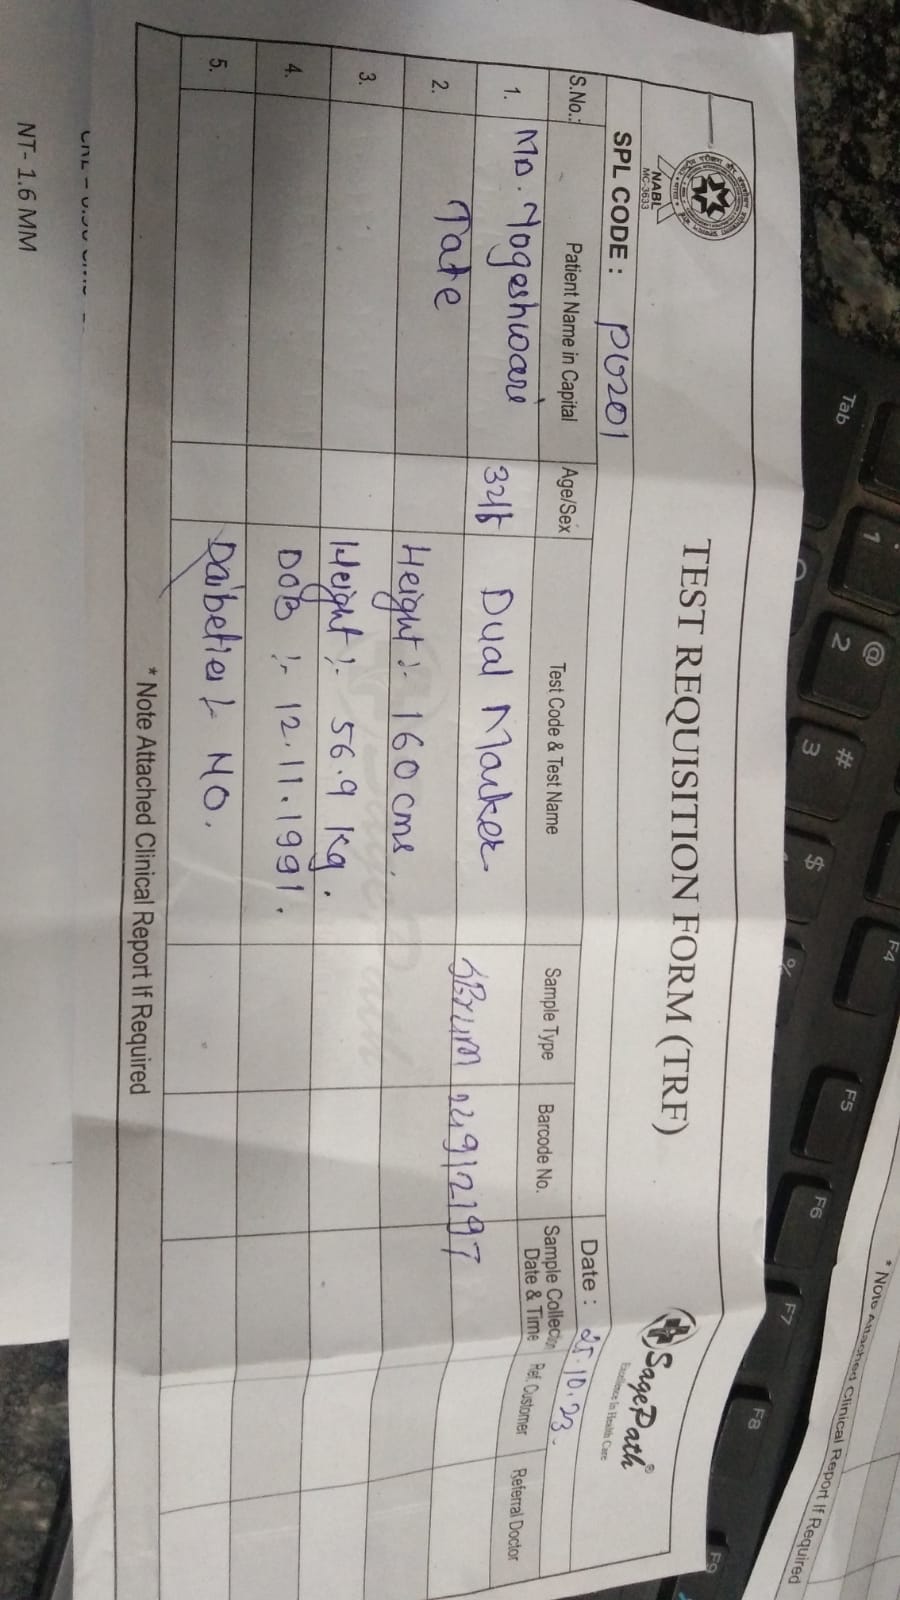 NABL
MC-3633
TEST REQUISITION FORM (TRF)
SagePath®
Excellence In Health Care
SPL CODE : PU201
Date : 25.10.23.
S.No.: Patient Name in Capital Age/Sex Test Code & Test Name Sample Type Barcode No. Sample Collection Date & Time Ref. Customer Referral Doctor
1. Yogeshwari Dual Marker
2. Tate Height :- 160 cms.
3. Weight :- 56.9 kg.
4. DOB :- 12.11.1991.
5. Daibeties :- NO.
* Note Attached Clinical Report If Required
NT- 1.6 MM
* Note Attached Clinical Report If Required
Tab
1
@
2
#
3
$
%
F4
F5
F6
F7
F8
F9